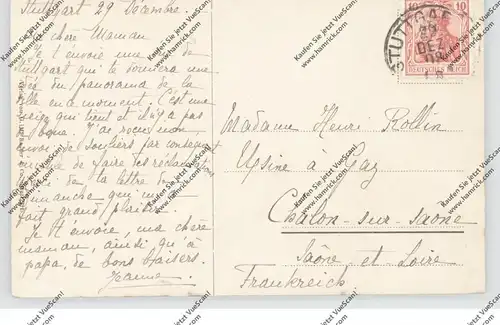 Stuttgart 29 Décembre.
Ma chère Maman
Je t'envoie une vue de
Stuttgart qui te donnera une
idée du panorama de la
ville en ce moment. C'est une
neige qui tient et il n'y a pas
de boue. J'ai reçu mon
envoi de souliers par conséquent
de faire des réclam
de la lettre de
dimanche qui m'a
fait grand plaisir.
Je t'envoie, ma chère
maman, ainsi qu'à
papa, de bons baisers.
Jeanne
10 10
DEUTSCHES REICH
STUTTGART
29
DEZ
Madame Henri Rollin
Usine à Gaz
Chalon-sur-Saône
Saône et Loire
Frankreich
Kaufen Sie jetzt VueScan!
www.hamrick.com